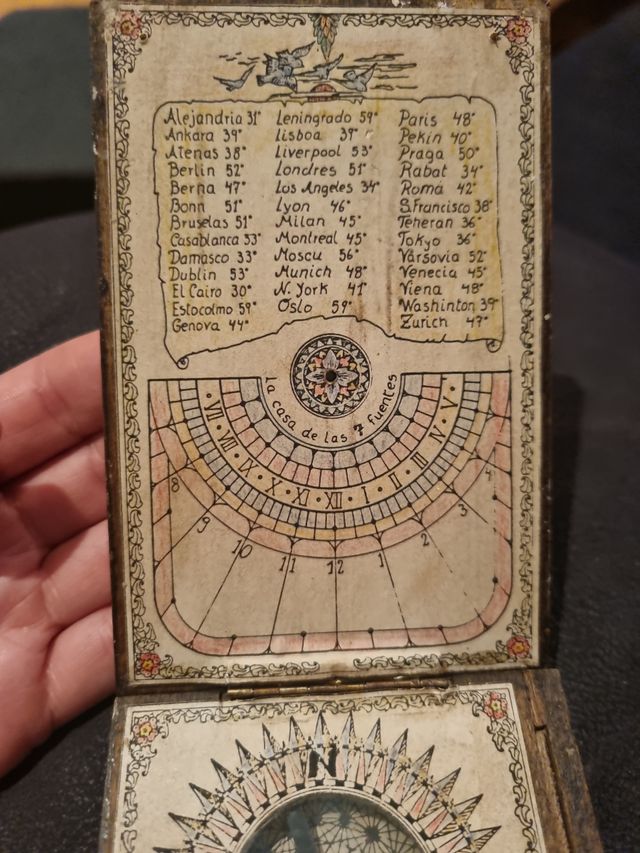 Alejandria 31°
Ankara 39°
Atenas 38°
Berlin 52°
Berna 47°
Bonn 51°
Bruselas 51°
Casablanca 33°
Damasco 33°
Dublin 53°
El Cairo 30°
Estocolmo 59°
Genova 44°
Leningrado 59°
Lisboa 39°
Liverpool 53°
Londres 51°
Los Angeles 34°
Lyon 46°
Milan 45°
Montreal 45°
Moscu 56°
Munich 48°
N. York 41°
Oslo 59°
Paris 48°
Pekin 40°
Praga 50°
Rabat 34°
Roma 42°
S.Francisco 38°
Teheran 36°
Tokyo 36°
Varsovia 52°
Venecia 45°
Viena 48°
Washinton 39°
Zurich 47°
La casa de las 7 fuentes
VII · VIII · IX · X · XI · XII · I · II · III · IV · V
8 9 10 11 12 1 2 3 4
N